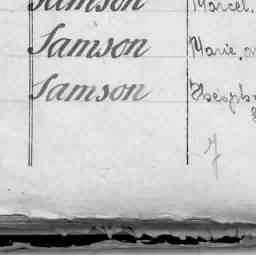 Samson Marcel,
Samson Marie,
Samson